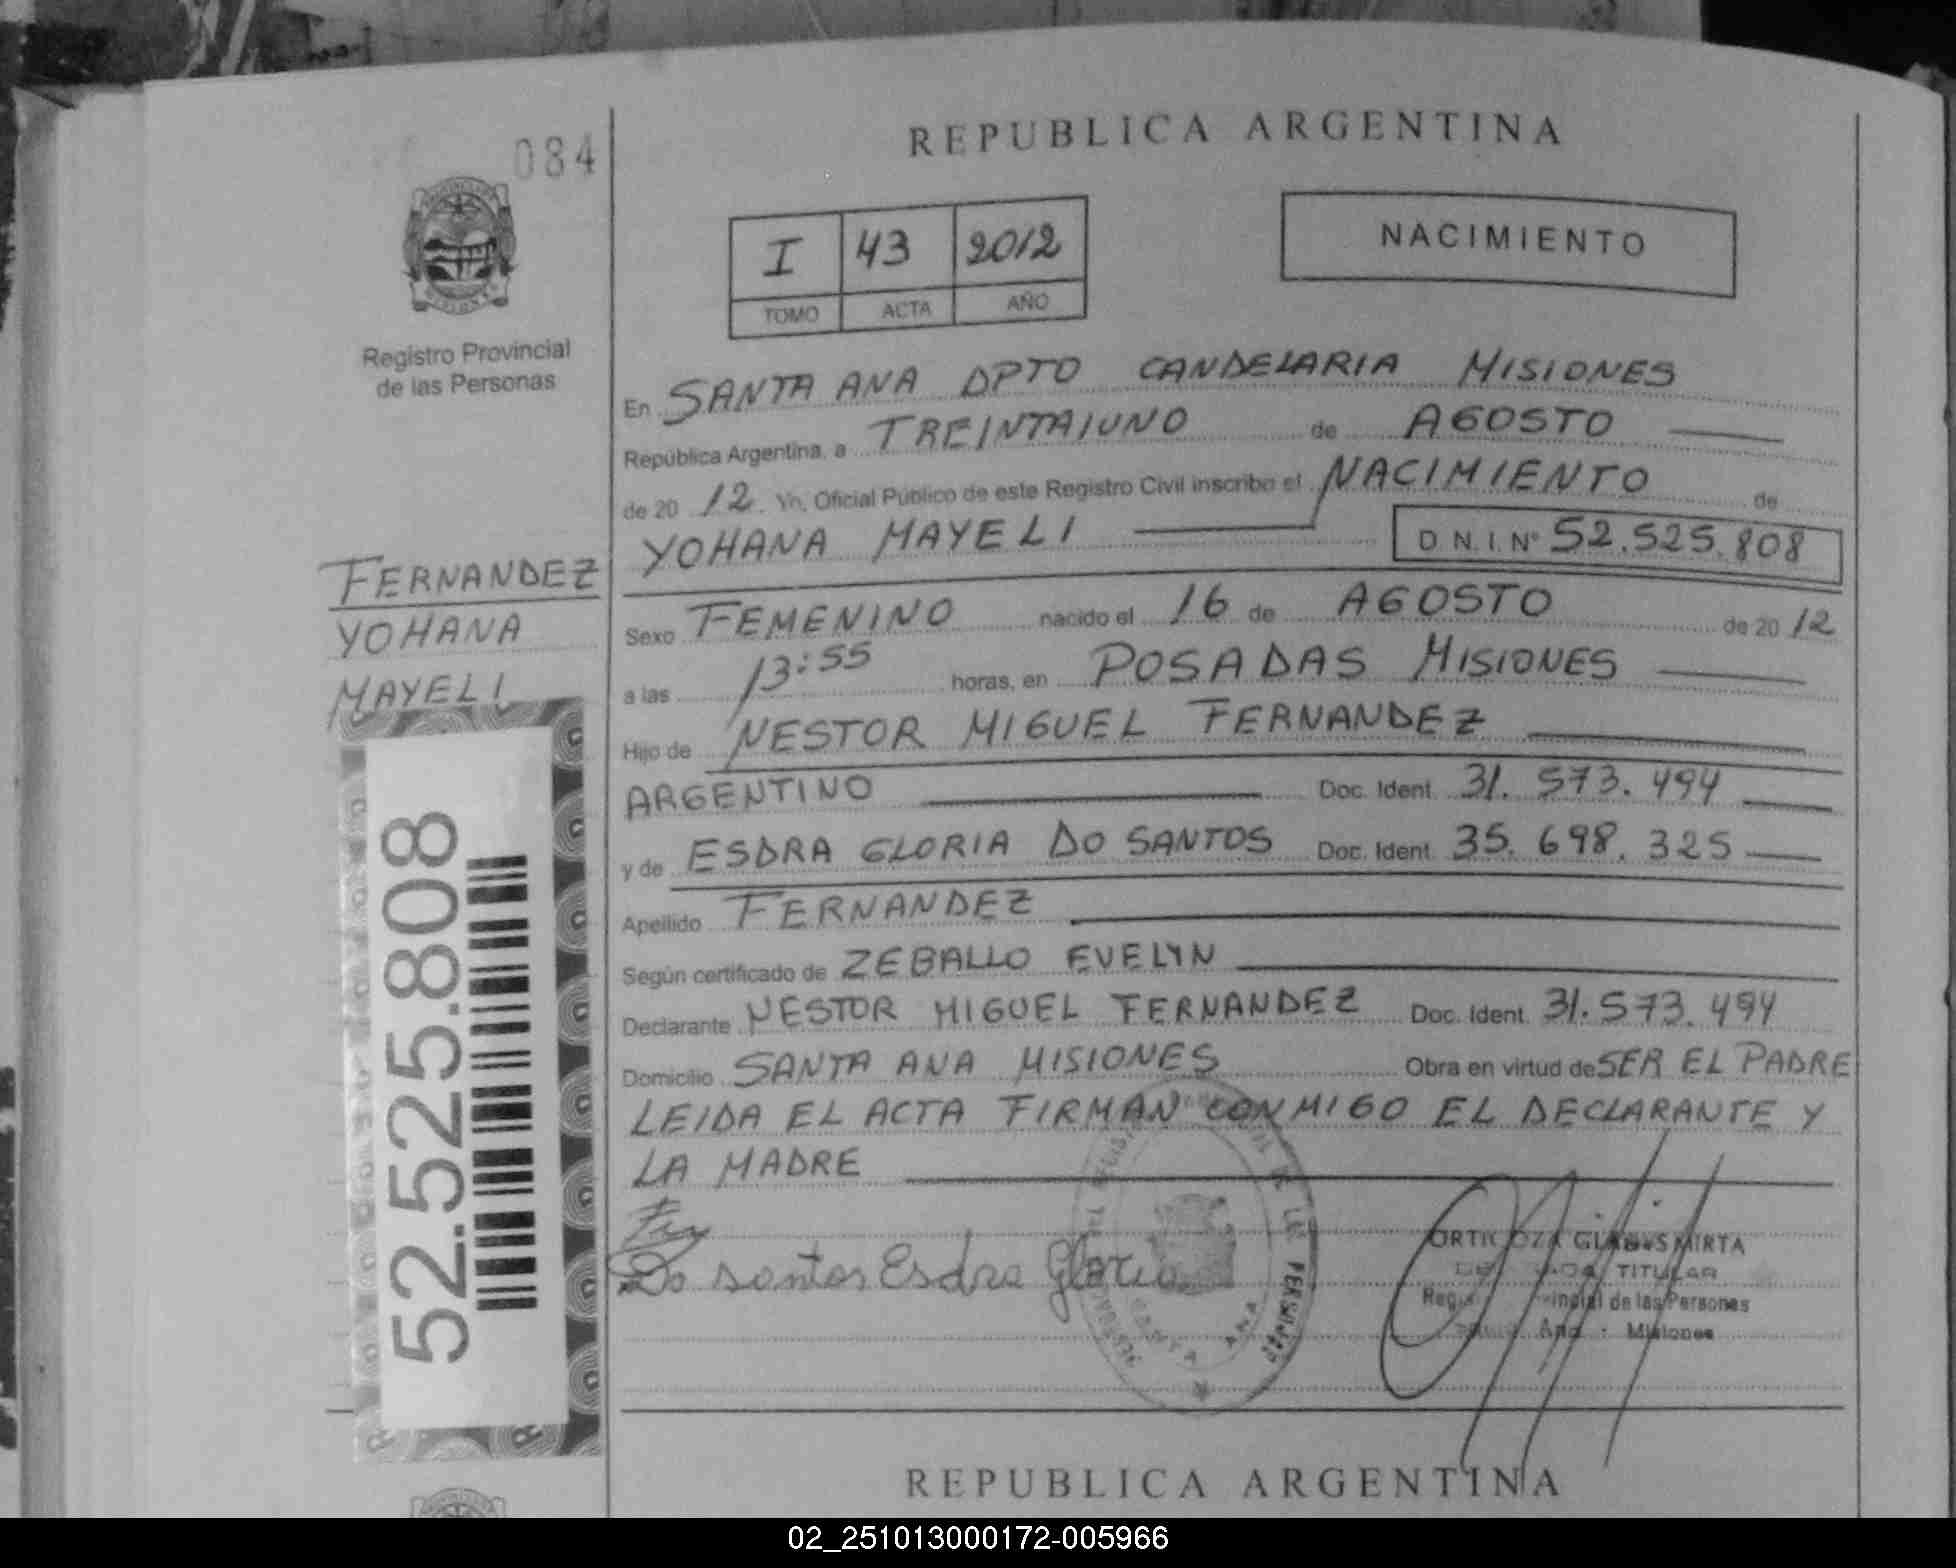 084
REPUBLICA ARGENTINA
I 43 2012
TOMO ACTA AÑO
NACIMIENTO
Registro Provincial
de las Personas
En SANTA ANA DPTO CANDELARIA MISIONES
República Argentina, a TREINTAIUNO de AGOSTO
de 20 12. Yo, Oficial Público de este Registro Civil inscribo el NACIMIENTO de
YOHANA MAYELI D N.I. Nº 52.525.808
FERNANDEZ
YOHANA
MAYELI
Sexo FEMENINO nacido el 16 de AGOSTO de 20 12
a las 13:55 horas, en POSADAS MISIONES
Hijo de NESTOR MIGUEL FERNANDEZ
ARGENTINO Doc. Ident. 31.573.494
y de ESDRA GLORIA DO SANTOS Doc. Ident. 35.698.325
Apellido FERNANDEZ
Según certificado de ZEBALLO EVELYN
Declarante NESTOR MIGUEL FERNANDEZ Doc. Ident. 31.573.494
Domicilio SANTA ANA MISIONES Obra en virtud de SER EL PADRE
LEIDA EL ACTA FIRMAN CONMIGO EL DECLARANTE Y
LA MADRE
52.525.808
Do santos Esdra Gloria
GLADYS MIRTA
TITULAR
de las Personas
Ana - Misiones
SANTA ANA
REPUBLICA ARGENTINA
02_251013000172-005966